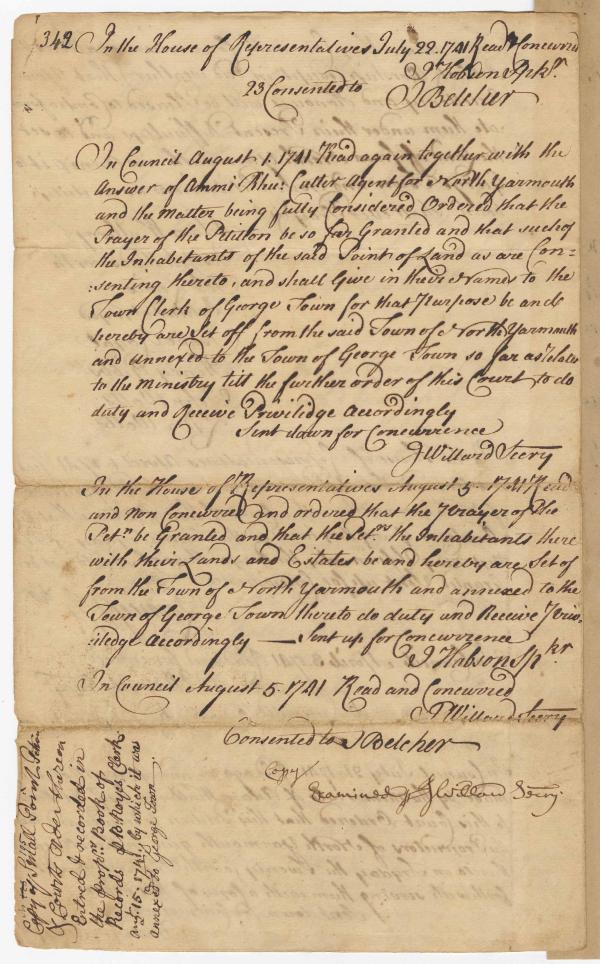 342
In the House of Representatives July 22. 1741 Read & Concurred
J Hobson Spkr.
23 Consented to
J Belcher
In Council August 1. 1741 Read again together with the
Answer of Ammi Rhu: Cutter Agent for North Yarmouth
and the Matter being fully Considered Ordered that the
Prayer of the Petition be so far Granted and that such of
the Inhabitants of the said Point of Land as are Con-
:senting thereto, and shall Give in their Names to the
Town Clerk of George Town for that Purpose be and
hereby are Set off from the said Town of North Yarmouth
and annexed to the Town of George Town so far as relates
to the Ministry till the further order of this Court to do
duty and Receive Privilidge accordingly
Sent down for Concurrence
J Willard Secry
In the House of Representatives August 5. 1741 Read
and Non Concurred and ordered that the Prayer of the
Petn. be Granted and that the Petrs. the Inhabitants there
with their Lands and Estates be and hereby are Set of
from the Town of North Yarmouth and annexed to the
Town of George Town there to do duty and Receive Priv-
iledge Accordingly — Sent up for Concurrence
J Hobson Spkr
In Council August 5. 1741 Read and Concurred
J Willard Secry
Consented to J Belcher
Copy
Examined p J Willard Secry.
Copy of Small Point Petitn
& Courts Order thereon
Entred & recorded in
the Proprs. Book of
Records p Royal Clark
Augt. 15. 1741, by which it was
annexed to George Town